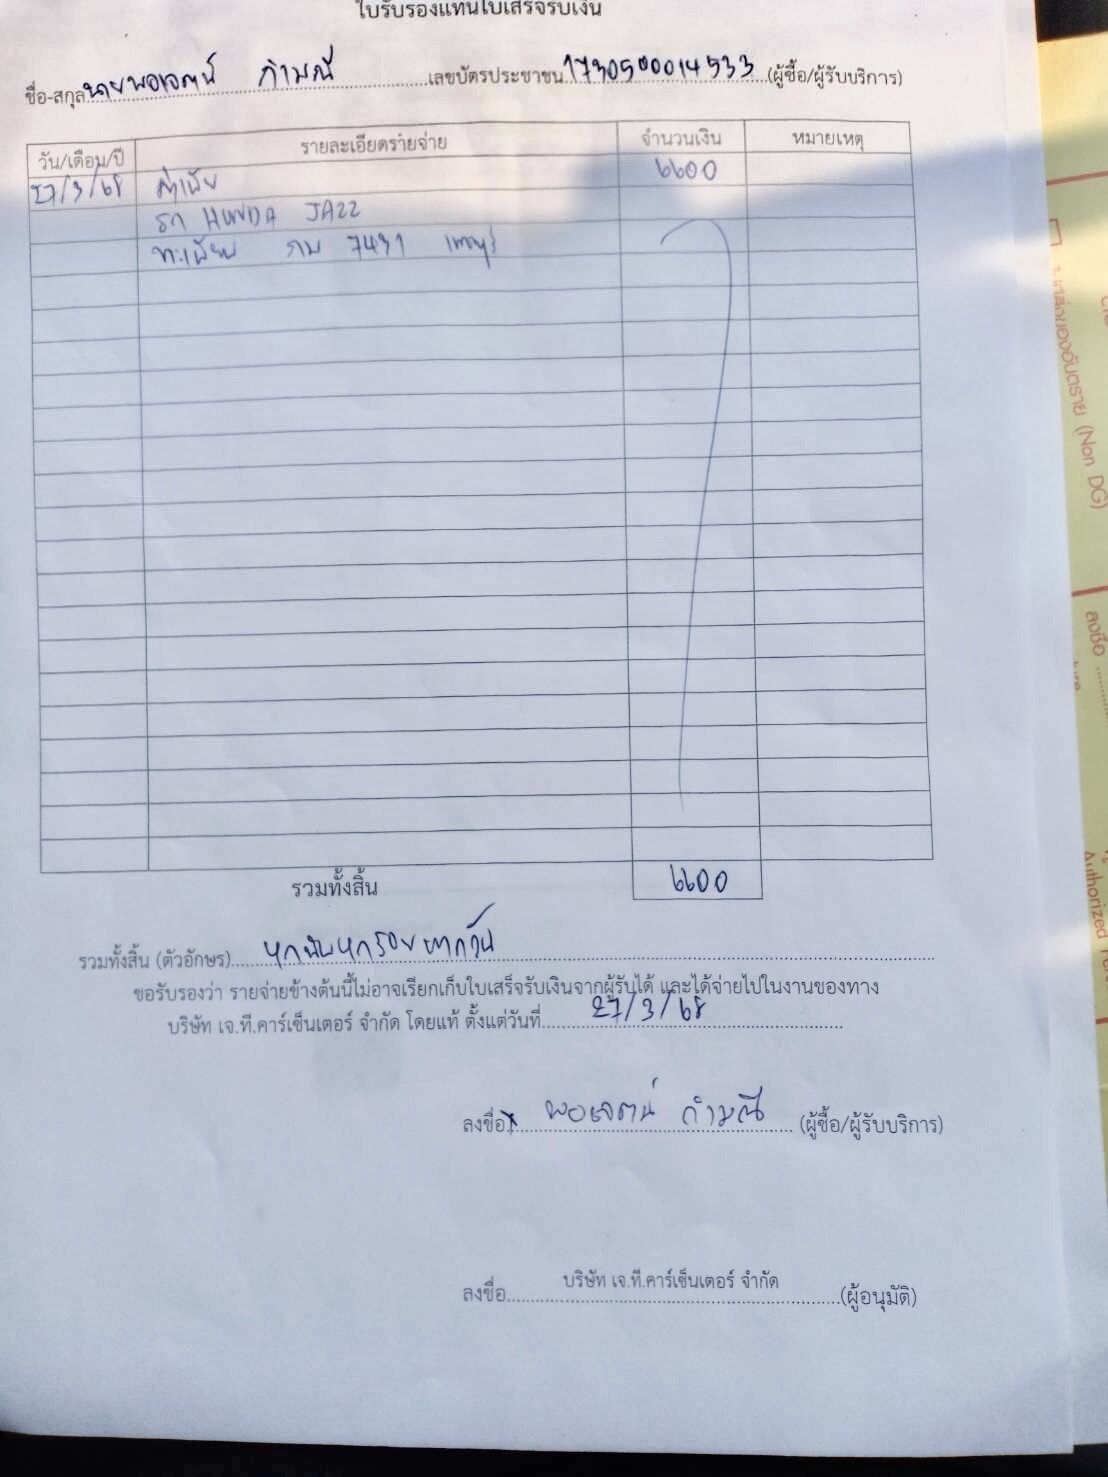 ใบรับรองแทนใบเสร็จรับเงิน
ชื่อ-สกุล นายพอเจตน์ กำมณี เลขบัตรประชาชน 1730500014533 (ผู้ซื้อ/ผู้รับบริการ)
วัน/เดือน/ปี รายละเอียดรายจ่าย จำนวนเงิน หมายเหตุ
27/3/68 6600
รถ HONDA JAZZ
ทะเบียน กม 7431
รวมทั้งสิ้น 6600
รวมทั้งสิ้น (ตัวอักษร) หกพันหกร้อยบาทถ้วน
ขอรับรองว่า รายจ่ายข้างต้นนี้ไม่อาจเรียกเก็บใบเสร็จรับเงินจากผู้รับได้ และได้จ่ายไปในงานของทาง
บริษัท เจ.ที.คาร์เซ็นเตอร์ จำกัด โดยแท้ ตั้งแต่วันที่ 27/3/68
ลงชื่อ พอเจตน์ กำมณี (ผู้ซื้อ/ผู้รับบริการ)
บริษัท เจ.ที.คาร์เซ็นเตอร์ จำกัด
ลงชื่อ (ผู้อนุมัติ)
(Non DG)
ลงชื่อ
Authorized